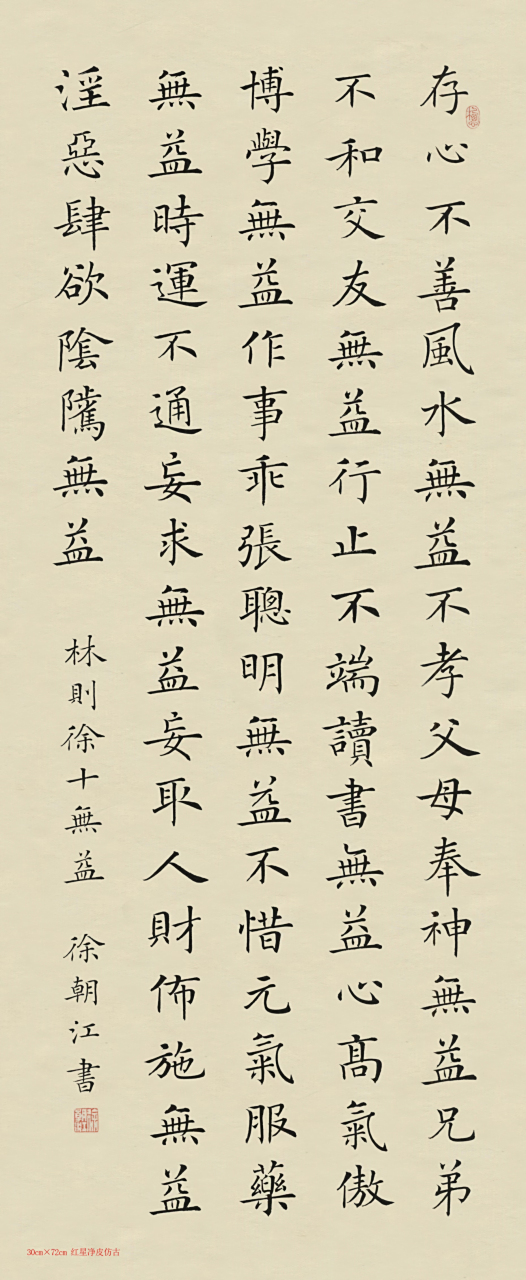 存心不善風水無益不孝父母奉神無益兄弟
不和交友無益行止不端讀書無益心高氣傲
博學無益作事乖張聰明無益不惜元氣服藥
無益時運不通妄求無益妄取人財佈施無益
淫惡肆欲陰騭無益
林則徐十無益 徐朝江書
30cm×72cm 红星净皮仿古